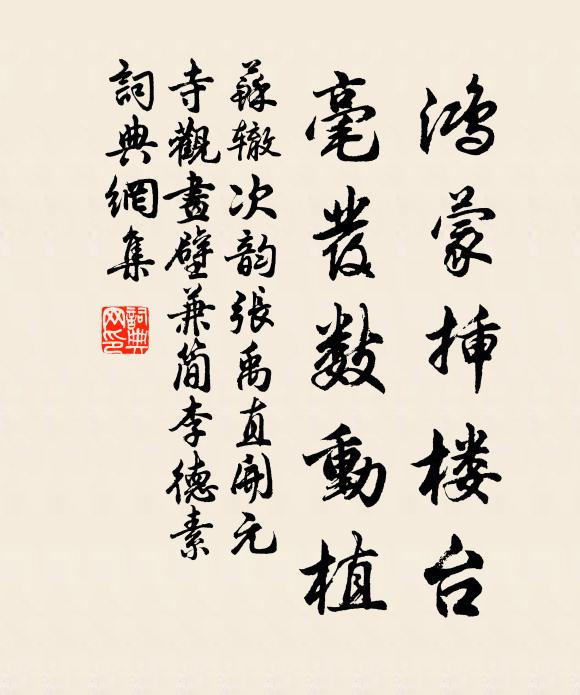 鴻蒙插楼台
毫发数動植
蘇辙次韵張禹直開元
寺觀畫壁兼简李德素
詞典網集
詞典网印